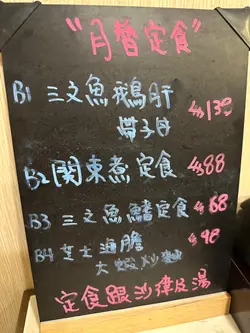 "月替定食"
B1 三文魚鵝肝
帶子丼 $139
B2 関東煮定食 $88
B3 三文魚鰭定食 $68
B4 芝士海膽 $98
大蝦炒麵
定食跟沙律及湯